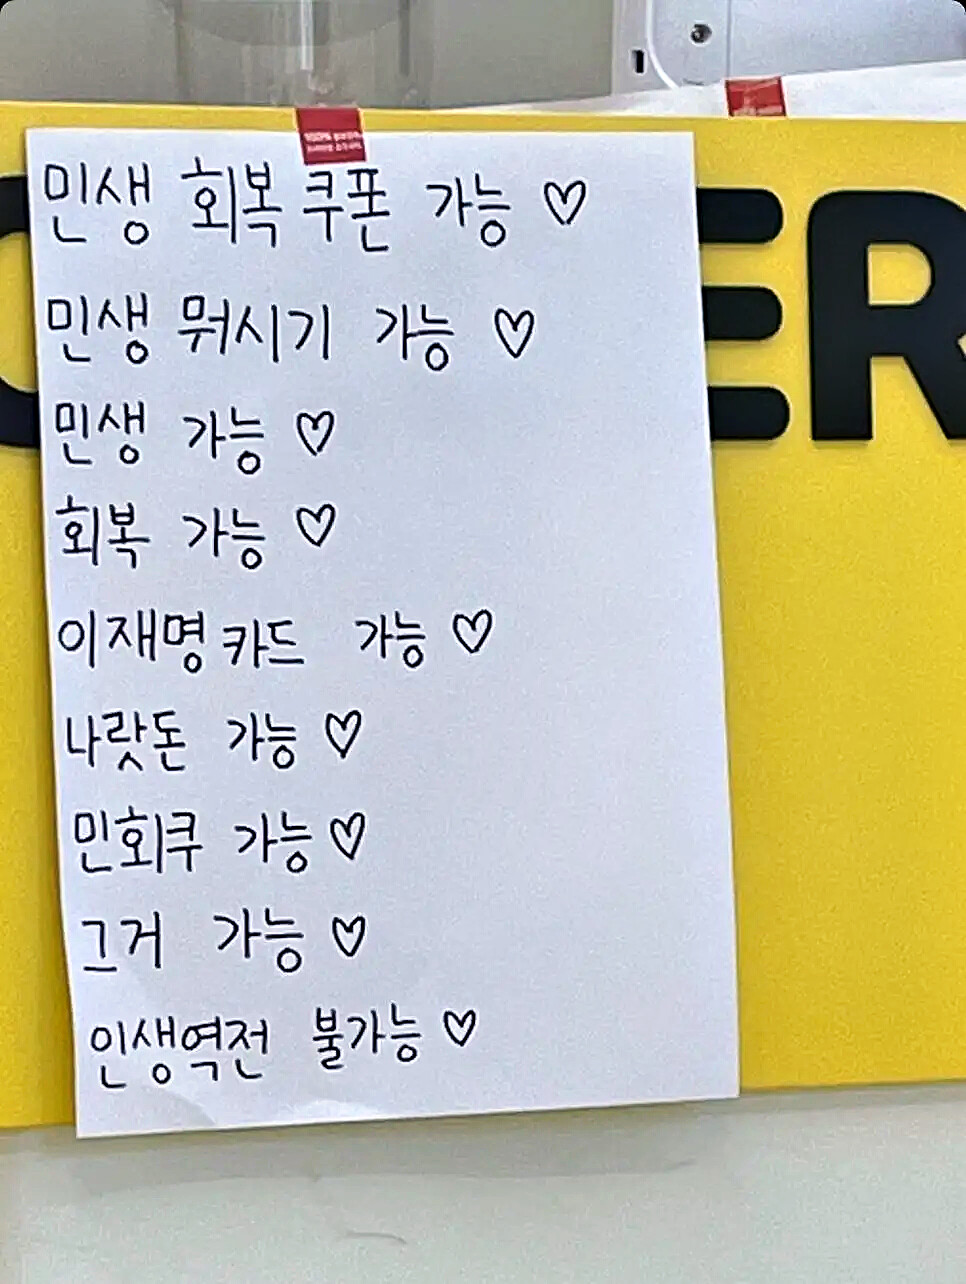 민생 회복 쿠폰 가능 ♡
민생 뭐시기 가능 ♡
민생 가능 ♡
회복 가능 ♡
이재명 카드 가능 ♡
나랏돈 가능 ♡
민회쿠 가능 ♡
그거 가능 ♡
인생역전 불가능 ♡
ER